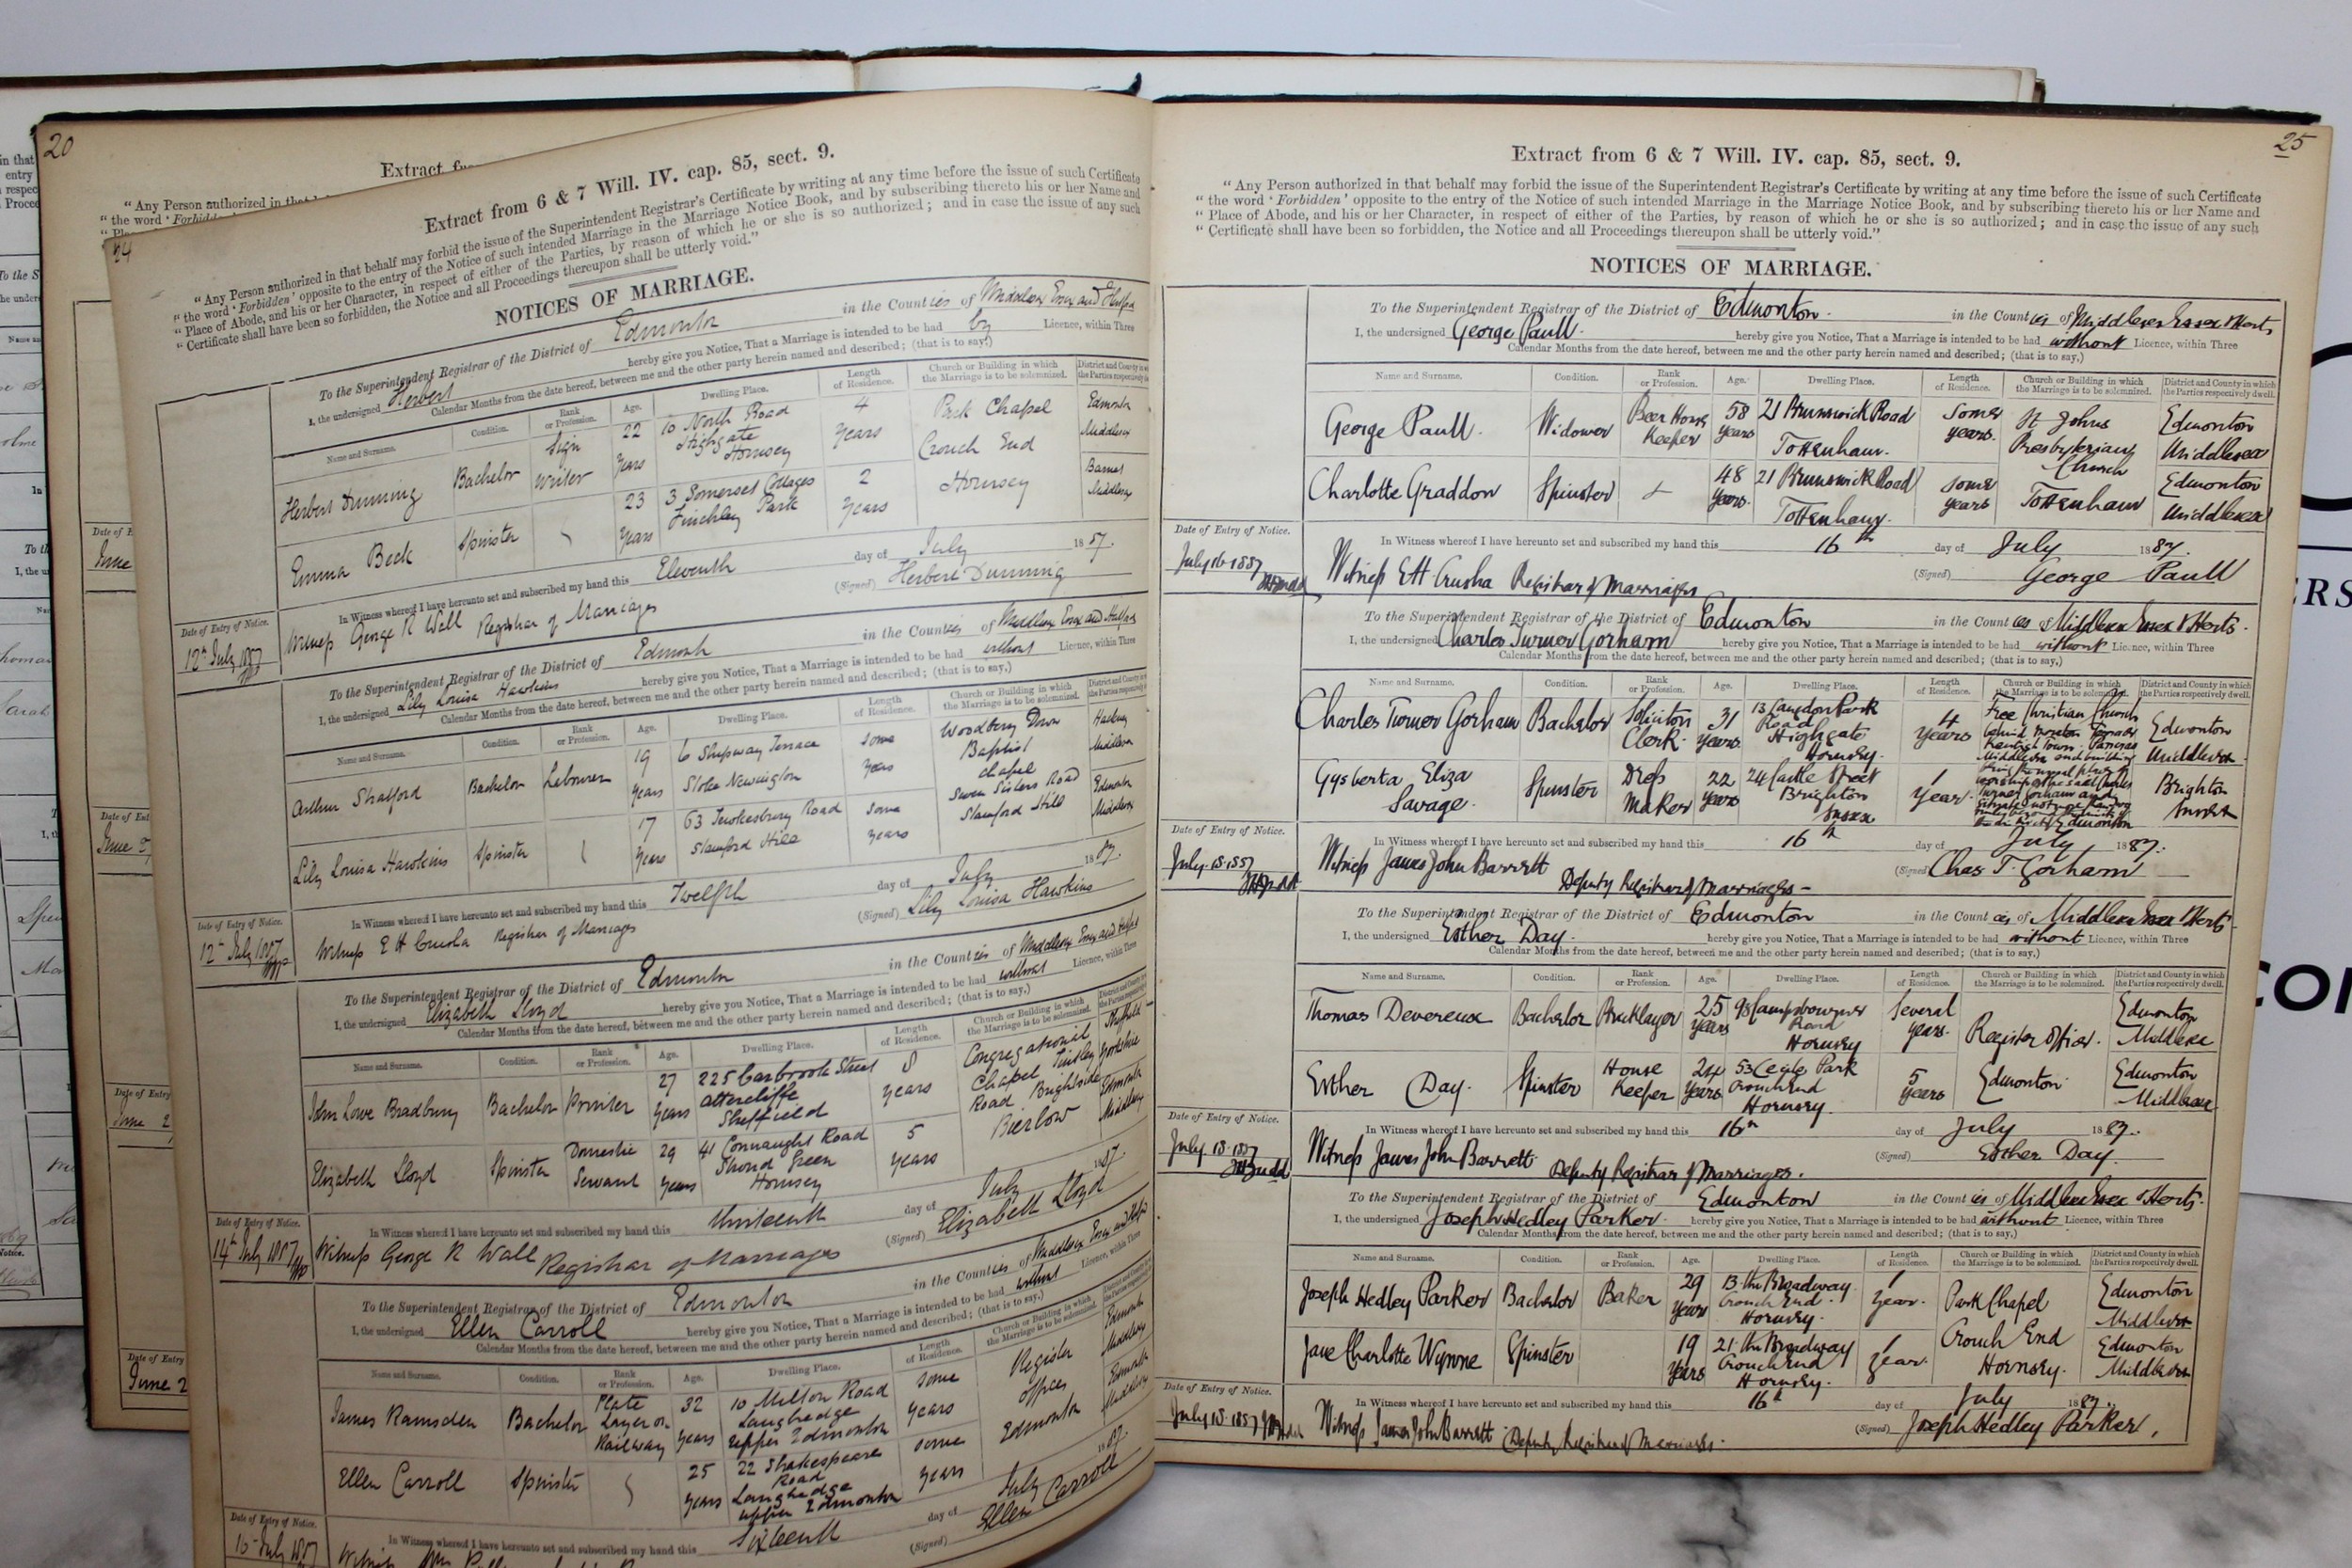 20
Extract
24
Extract from 6 & 7 Will. IV. cap. 85, sect. 9.
"Any Person authorized in that behalf may forbid the issue of the Superintendent Registrar's Certificate by writing at any time before the issue of such Certificate
"the word 'Forbidden' opposite to the entry of the Notice of such intended Marriage in the Marriage Notice Book, and by subscribing thereto his or her Name and
"Place of Abode, and his or her Character, in respect of either of the Parties, by reason of which he or she is so authorized; and in case the issue of any such
"Certificate shall have been so forbidden, the Notice and all Proceedings thereupon shall be utterly void."
NOTICES OF MARRIAGE.
To the Superintendent Registrar of the District of Edmonton in the Counties of Middlesex Essex and
I, the undersigned Herbert hereby give you Notice, That a Marriage is intended to be had by Licence, within Three
Calendar Months from the date hereof, between me and the other party herein named and described; (that is to say,)
Name and Surname. Condition. Rank or Profession. Age. Dwelling Place. Length of Residence. Church or Building in which the Marriage is to be solemnized. District and County in
Herbert Dunning Bachelor Sign Writer 22 Years 10 North Road Highgate Hornsey 4 Years Park Chapel Edmonton Middlesex
Emma Beck Spinster 23 Years 3 Somerset Cottages Finchley Park 2 Years Crouch End Hornsey Barnet Middlesex
In Witness whereof I have hereunto set and subscribed my hand this Eleventh day of July 1887.
(Signed) Herbert Dunning
Date of Entry of Notice.
12th July 1887
Witness George R Wall Registrar of Marriages
To the Superintendent Registrar of the District of Edmonton in the Counties of Middlesex Essex and
I, the undersigned Lily Louisa Hawkins hereby give you Notice, That a Marriage is intended to be had without Licence, within Three
Calendar Months from the date hereof, between me and the other party herein named and described; (that is to say,)
Name and Surname. Condition. Rank or Profession. Age. Dwelling Place. Length of Residence. Church or Building in which the Marriage is to be solemnized. District and County in
Arthur Bachelor Labourer 19 Years 6 Shipway Terrace Stoke Newington some Years Woodberry Down Baptist Chapel Hackney Middlesex
Lily Louisa Hawkins Spinster 17 Years 63 Tewkesbury Road Stamford Hill some years Seven Sisters Road Stamford Hill Edmonton Middlesex
In Witness whereof I have hereunto set and subscribed my hand this Twelfth day of July 1887.
(Signed) Lily Louisa Hawkins
Date of Entry of Notice.
12th July 1887
Witness E H Crusha Registrar of Marriages
To the Superintendent Registrar of the District of Edmonton in the Counties of Middlesex Essex and
I, the undersigned Elizabeth Lloyd hereby give you Notice, That a Marriage is intended to be had without Licence, within Three
Calendar Months from the date hereof, between me and the other party herein named and described; (that is to say,)
Name and Surname. Condition. Rank or Profession. Age. Dwelling Place. Length of Residence. Church or Building in which the Marriage is to be solemnized.
John Lowe Bradbury Bachelor 27 Years 225 Carbrook Street Attercliffe Sheffield 8 years Congregational Chapel Tinsley Sheffield Yorkshire
Elizabeth Lloyd Spinster Domestic Servant 29 years 41 Connaught Road Stroud Green Hornsey 5 years Road Brightside Bierlow Edmonton Middlesex
In Witness whereof I have hereunto set and subscribed my hand this thirteenth day of July 1887
(Signed) Elizabeth Lloyd
Date of Entry of Notice.
14th July 1887
Witness George R Wall Registrar of Marriages
To the Superintendent Registrar of the District of Edmonton in the Counties of Middlesex Essex and
I, the undersigned Ellen Carroll hereby give you Notice, That a Marriage is intended to be had without Licence, within Three
Calendar Months from the date hereof, between me and the other party herein named and described; (that is to say,)
Name and Surname. Condition. Rank or Profession. Age. Dwelling Place. Length of Residence. Church or Building in which the Marriage is to be solemnized.
James Ramsden Bachelor Plate Layer on Railway 32 years 10 Milton Road Langhedge Upper Edmonton some years Register offices Edmonton Middlesex
Ellen Carroll Spinster 25 years 22 Shakespeare Road Langhedge Upper Edmonton some years Edmonton Edmonton Middlesex
In Witness whereof I have hereunto set and subscribed my hand this Sixteenth day of July 1887
(Signed) Ellen Carroll
Date of Entry of Notice.
16th July 1887
25
Extract from 6 & 7 Will. IV. cap. 85, sect. 9.
"Any Person authorized in that behalf may forbid the issue of the Superintendent Registrar's Certificate by writing at any time before the issue of such Certificate
"the word 'Forbidden' opposite to the entry of the Notice of such intended Marriage in the Marriage Notice Book, and by subscribing thereto his or her Name and
"Place of Abode, and his or her Character, in respect of either of the Parties, by reason of which he or she is so authorized; and in case the issue of any such
"Certificate shall have been so forbidden, the Notice and all Proceedings thereupon shall be utterly void."
NOTICES OF MARRIAGE.
To the Superintendent Registrar of the District of Edmonton. in the Counties of Middlesex Essex & Herts
I, the undersigned George Paull. hereby give you Notice, That a Marriage is intended to be had without Licence, within Three
Calendar Months from the date hereof, between me and the other party herein named and described; (that is to say,)
Name and Surname. Condition. Rank or Profession. Age. Dwelling Place. Length of Residence. Church or Building in which the Marriage is to be solemnized. District and County in which the Parties respectively dwell.
George Paull. Widower Beer House Keeper 58 years 21 Brunswick Road Tottenham. Some years. St Johns Presbyterian Church Edmonton Middlesex
Charlotte Graddon Spinster 48 Years. 21 Brunswick Road Tottenham. some years Tottenham Edmonton Middlesex
In Witness whereof I have hereunto set and subscribed my hand this 16th day of July 1887.
(Signed) George Paull
Date of Entry of Notice.
July 16 1887
Witness E H Crusha Registrar of Marriages
To the Superintendent Registrar of the District of Edmonton in the Counties of Middlesex Essex & Herts.
I, the undersigned Charles Turner Gorham hereby give you Notice, That a Marriage is intended to be had without Licence, within Three
Calendar Months from the date hereof, between me and the other party herein named and described; (that is to say,)
Name and Surname. Condition. Rank or Profession. Age. Dwelling Place. Length of Residence. Church or Building in which the Marriage is to be solemnized. District and County in which the Parties respectively dwell.
Charles Turner Gorham Bachelor Solicitors Clerk. 31 years 13 Langdon Park Road Highgate Hornsey. 4 years Free Christian Church Kentish Town Pancras Middlesex Edmonton Middlesex
Gysberta Eliza Savage. Spinster Dress Maker 22 years 24 Castle Street Brighton Sussex 1 Year. Brighton Sussex
In Witness whereof I have hereunto set and subscribed my hand this 16th day of July 1887.
(Signed) Chas T. Gorham
Date of Entry of Notice.
July. 18. 1887
Witness James John Barrett Deputy Registrar of Marriages -
To the Superintendent Registrar of the District of Edmonton in the Counties of Middlesex Essex & Herts.
I, the undersigned Esther Day. hereby give you Notice, That a Marriage is intended to be had without Licence, within Three
Calendar Months from the date hereof, between me and the other party herein named and described; (that is to say,)
Name and Surname. Condition. Rank or Profession. Age. Dwelling Place. Length of Residence. Church or Building in which the Marriage is to be solemnized. District and County in which the Parties respectively dwell.
Thomas Devereux Bachelor Bricklayer 25 years 98 Campsbourne Road Hornsey Several years. Register Office. Edmonton Middlesex
Esther Day. Spinster House Keeper 24 Years Park Crouch End Hornsey. 5 years Edmonton Edmonton Middlesex
In Witness whereof I have hereunto set and subscribed my hand this 16th day of July 1887.
(Signed) Esther Day.
Date of Entry of Notice.
July 18. 1887
Witness James John Barrett Deputy Registrar of Marriages.
To the Superintendent Registrar of the District of Edmonton in the Counties of Middlesex Essex & Herts.
I, the undersigned Joseph Hedley Parker. hereby give you Notice, That a Marriage is intended to be had without Licence, within Three
Calendar Months from the date hereof, between me and the other party herein named and described; (that is to say,)
Name and Surname. Condition. Rank or Profession. Age. Dwelling Place. Length of Residence. Church or Building in which the Marriage is to be solemnized. District and County in which the Parties respectively dwell.
Joseph Hedley Parker Bachelor Baker 29 years 13 the Broadway Crouch End. Hornsey. 1 year. Park Chapel Edmonton Middlesex
Jane Charlotte Wynne Spinster 19 years 21 the Broadway Crouch End Hornsey. 1 year. Crouch End Hornsey. Edmonton Middlesex
In Witness whereof I have hereunto set and subscribed my hand this 16th day of July 1887.
(Signed) Joseph Hedley Parker.
Date of Entry of Notice.
July 18. 1887
Witness James John Barrett Deputy Registrar of Marriages.